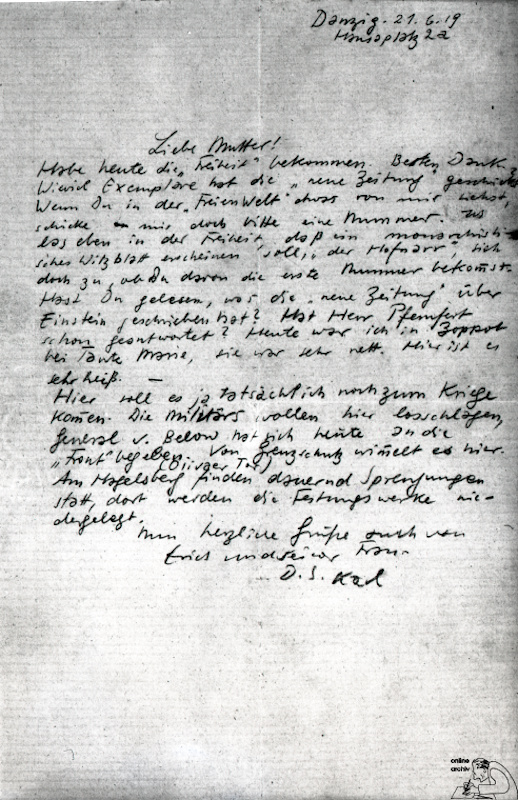 Danzig. 21.6.19
Hansaplatz 2a
Liebe Mutter!
Habe heute die „Freiheit" bekommen. Besten Dank.
Wieviel Exemplare hat die „neue Zeitung" geschickt?
Wenn Du in der „Freien Welt" etwas von mir siehst,
schicke mir doch bitte eine Nummer. Ich
las eben in der Freiheit, daß ein monarchisti-
sches Witzblatt erscheinen soll, „der Hofnarr", sieh
doch zu, ob Du davon die erste Nummer bekommst.
Hast Du gelesen, was die „neue Zeitung" über
Einstein geschrieben hat? Hat Herr Pfemfert
schon geantwortet? Heute war ich in Zoppot
bei Tante Marie, sie war sehr nett. Hier ist es
sehr heiß. —
Hier soll es ja tatsächlich noch zum Kriege
komen. Die Militärs wollen hier losschlagen,
General v. Below hat sich heute an die
„Front" begeben. Von Grenzschutz wimelt es hier.
(Olivaer Tor)
Am Hagelsberg finden dauernd Sprengungen
statt, dort werden die Festungswerke nie-
dergelegt.
Nun herzliche Grüße auch von
Erich und seiner Frau.
D. S. Karl
online
archiv